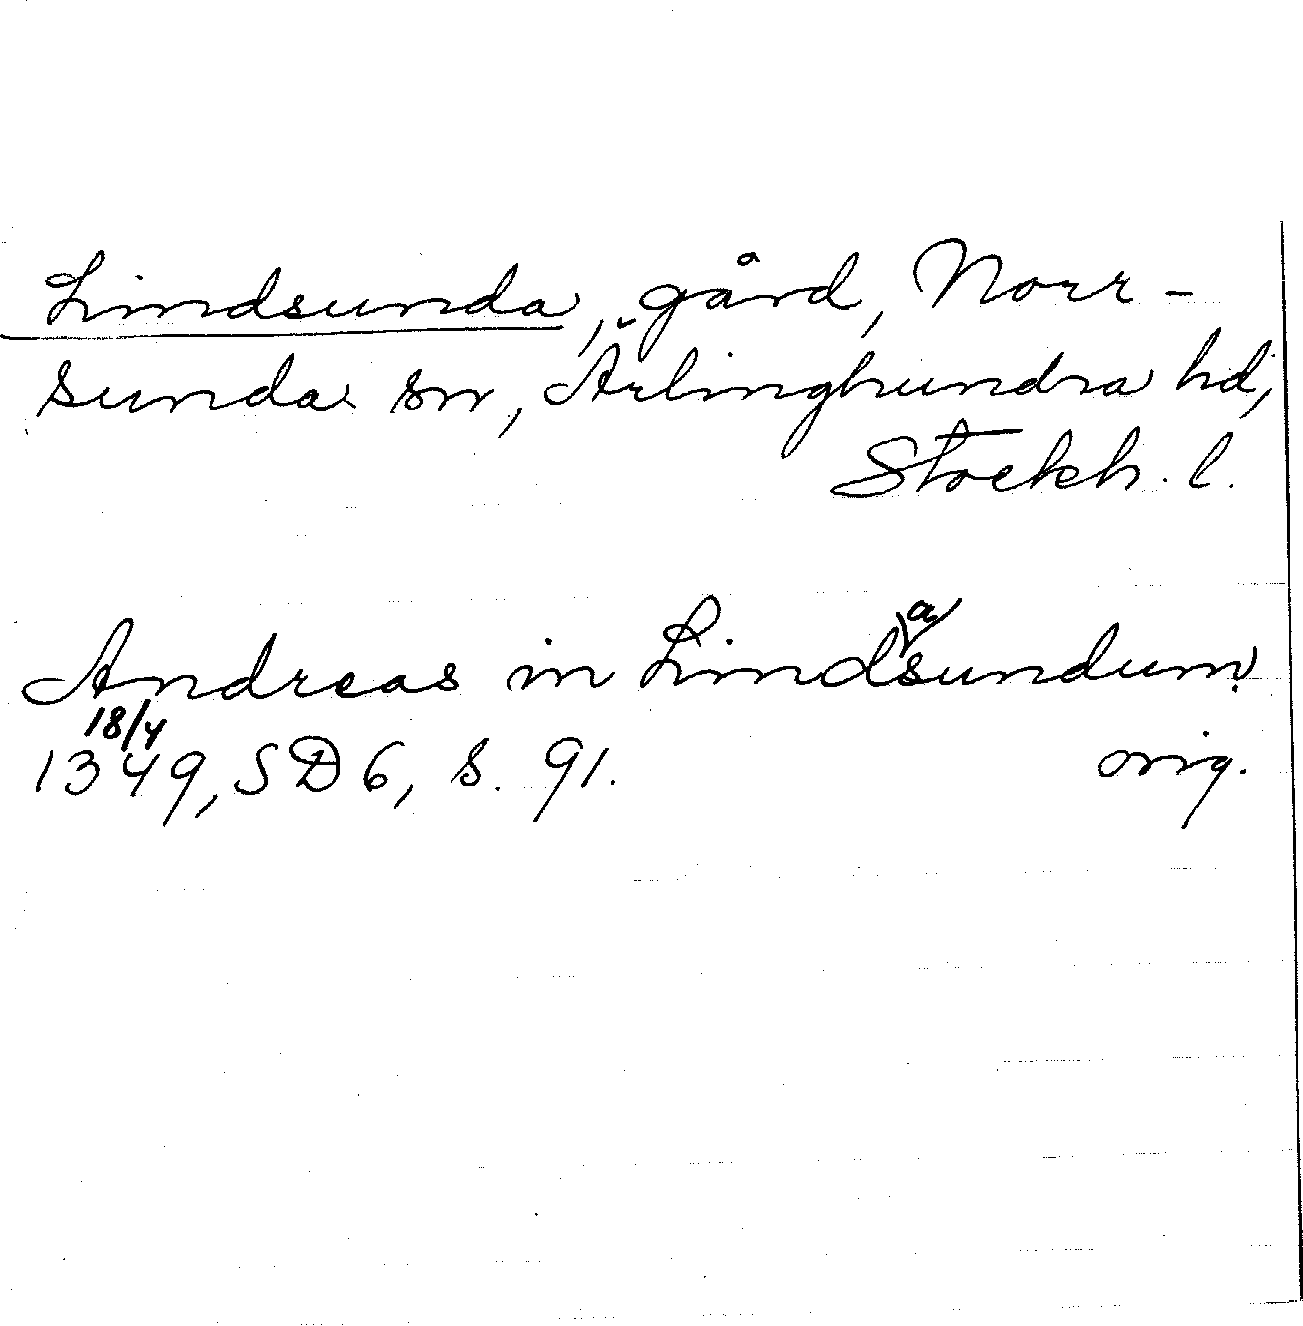 Lindsunda, gård, Norr-
sunda sn, Ärlinghundra hd,
Stockh. l.
Andreas in Lindasundum
18/4
1349, SD 6, s. 91. orig.